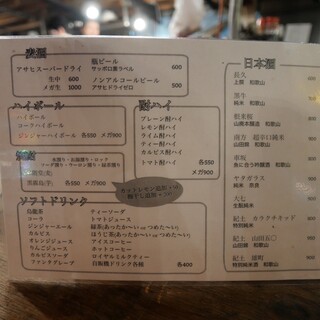 麦酒
アサヒスーパードライ
生中 600
メガ生 1000
瓶ビール
サッポロ黒ラベル 600
ノンアルコールビール
アサヒドライゼロ 500
ハイボール
ハイボール
コークハイボール
ジンジャーハイボール 各550 メガ900
酎ハイ
プレーン酎ハイ
レモン酎ハイ
ライム酎ハイ
ティー酎ハイ
カルピス酎ハイ
トマト酎ハイ 各550 メガ900
各550
ソフトドリンク
烏龍茶
コーラ
ジンジャーエール
カルピス
オレンジジュース
りんごジュース
カルピスソーダ
ファンタグレープ
ティーソーダ
トマトジュース
緑茶(あったか〜い or つめた〜い)
ほうじ茶(あったか〜い or つめた〜い)
アイスコーヒー
ホットコーヒー
ロイヤルミルクティー
自販機ドリンク各種 各400
日本酒
上撰 和歌山
黒牛
純米 和歌山
山田錦 和歌山
超辛口純米
山田錦 和歌山
車坂
和歌山
ヤタガラス
純米 奈良
大七
生酛純米
紀土 カラクチキッド
和歌山
紀土 山田五〇
山田錦 和歌山
紀土
特別純米酒 和歌山